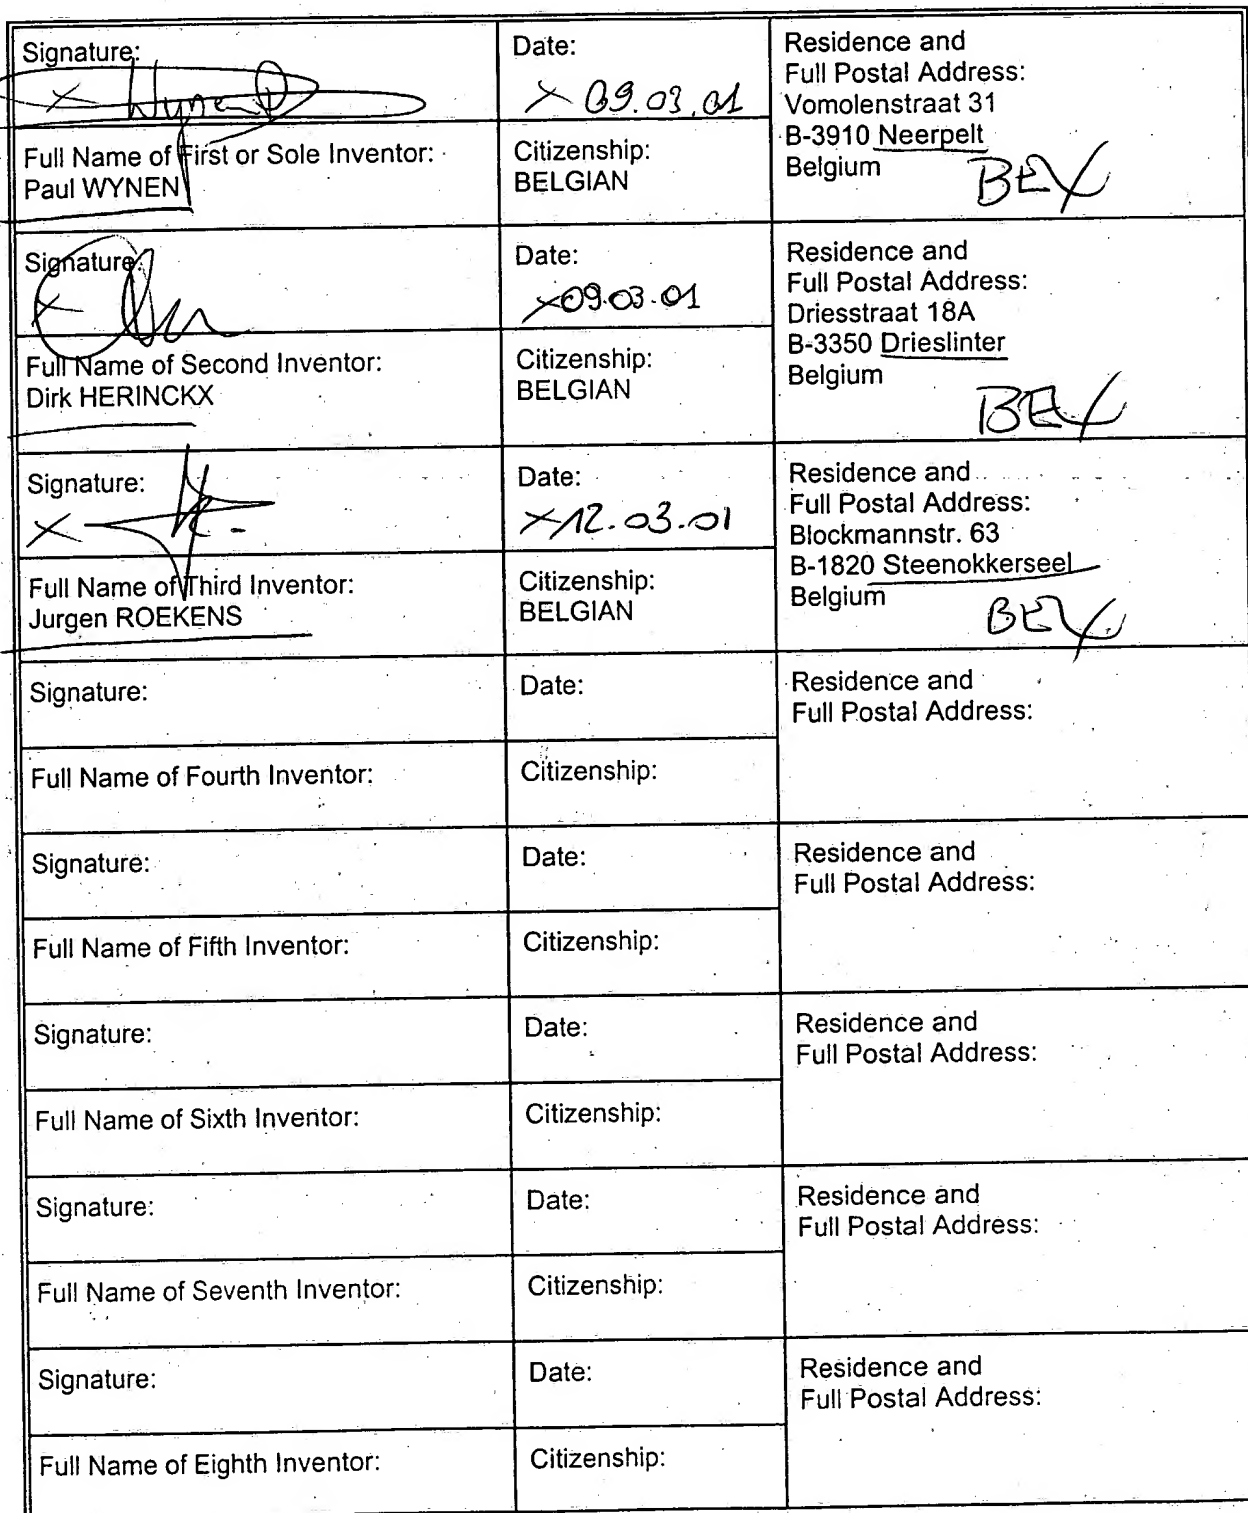 Signature:
× Wynen P
Date:
× 09.03.01
Residence and
Full Postal Address:
Vomolenstraat 31
B-3910 Neerpelt
Belgium
BEX
Full Name of First or Sole Inventor:
Paul WYNEN
Citizenship:
BELGIAN
Signature:
×
Date:
×09.03.01
Residence and
Full Postal Address:
Driesstraat 18A
B-3350 Drieslinter
Belgium
BEX
Full Name of Second Inventor:
Dirk HERINCKX
Citizenship:
BELGIAN
Signature:
×
Date:
×12.03.01
Residence and
Full Postal Address:
Blockmannstr. 63
B-1820 Steenokkerseel
Belgium
BEX
Full Name of Third Inventor:
Jurgen ROEKENS
Citizenship:
BELGIAN
Signature:
Date:
Residence and
Full Postal Address:
Full Name of Fourth Inventor:
Citizenship:
Signature:
Date:
Residence and
Full Postal Address:
Full Name of Fifth Inventor:
Citizenship:
Signature:
Date:
Residence and
Full Postal Address:
Full Name of Sixth Inventor:
Citizenship:
Signature:
Date:
Residence and
Full Postal Address:
Full Name of Seventh Inventor:
Citizenship:
Signature:
Date:
Residence and
Full Postal Address:
Full Name of Eighth Inventor:
Citizenship: